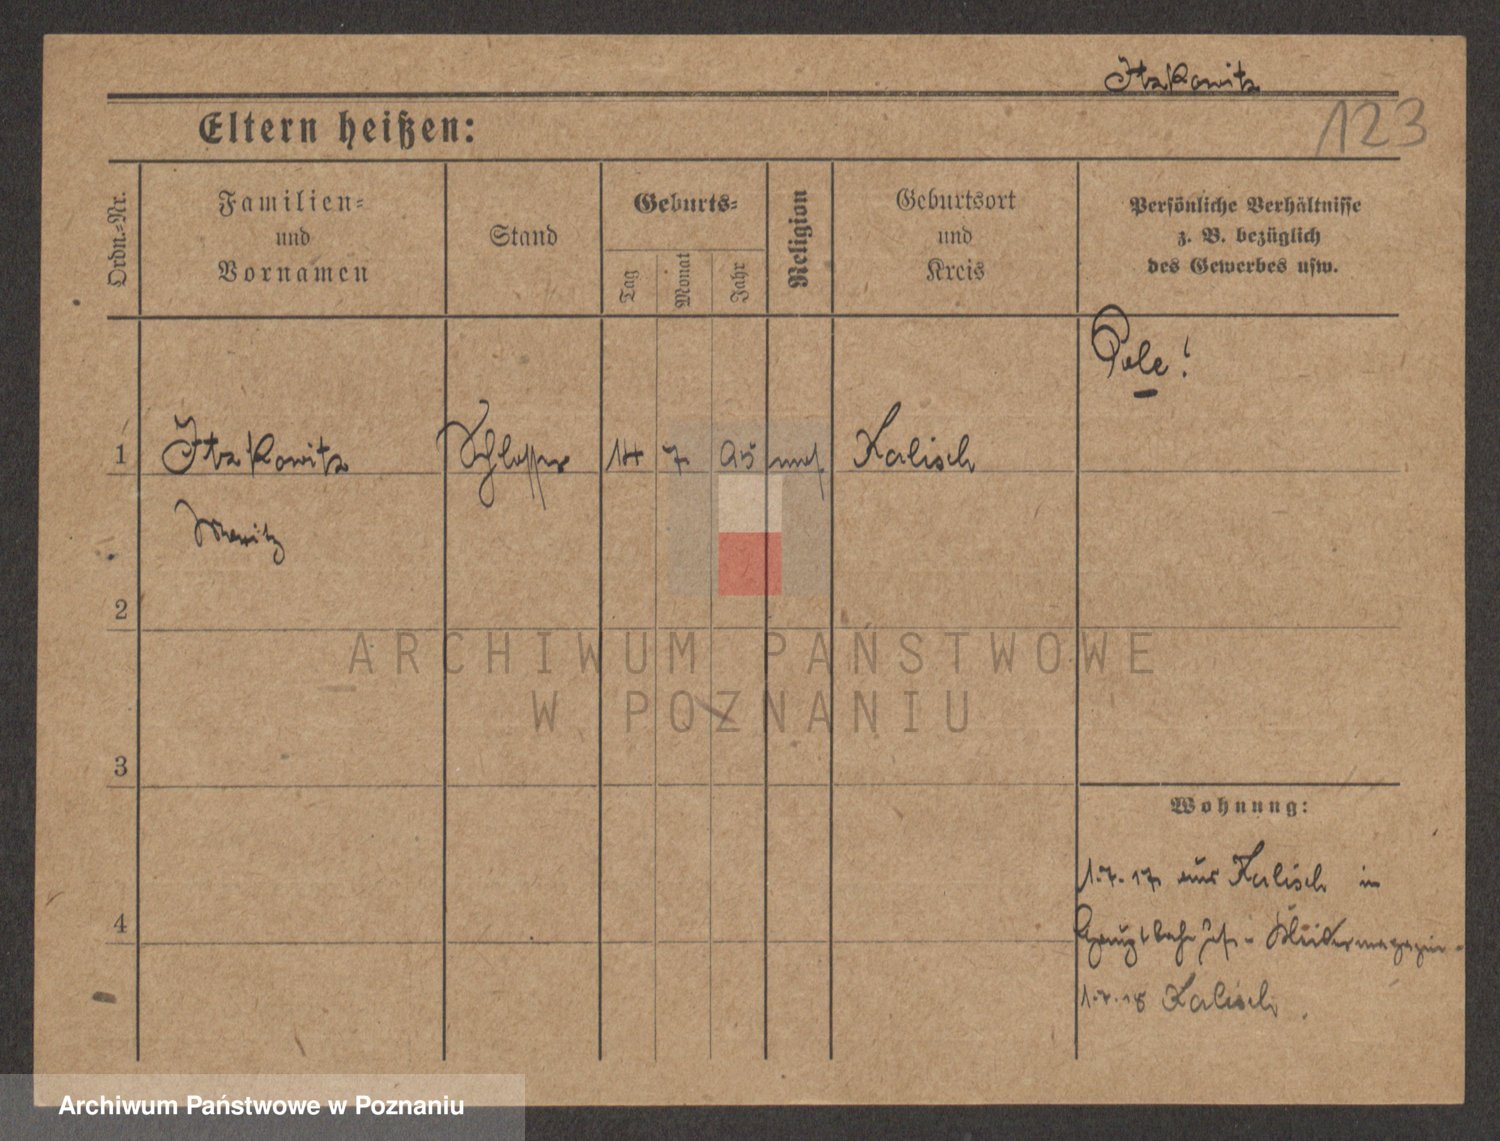 Itzkowitz
123
Eltern heißen:
Ordn.-Nr.
Familien-
und
Vornamen
Stand
Geburts-
Tag
Monat
Jahr
Religion
Geburtsort
und
Kreis
Persönliche Verhältnisse
z. B. bezüglich
des Gewerbes usw.
Pole!
1 Itzkowitz Schlosser 14 7 95 mos. Kalisch
Moritz
2
ARCHIWUM PAŃSTWOWE
W POZNANIU
3
Wohnung:
1.7.17 aus Kalisch in
4
1.7.18 Kalisch.
Archiwum Państwowe w Poznaniu